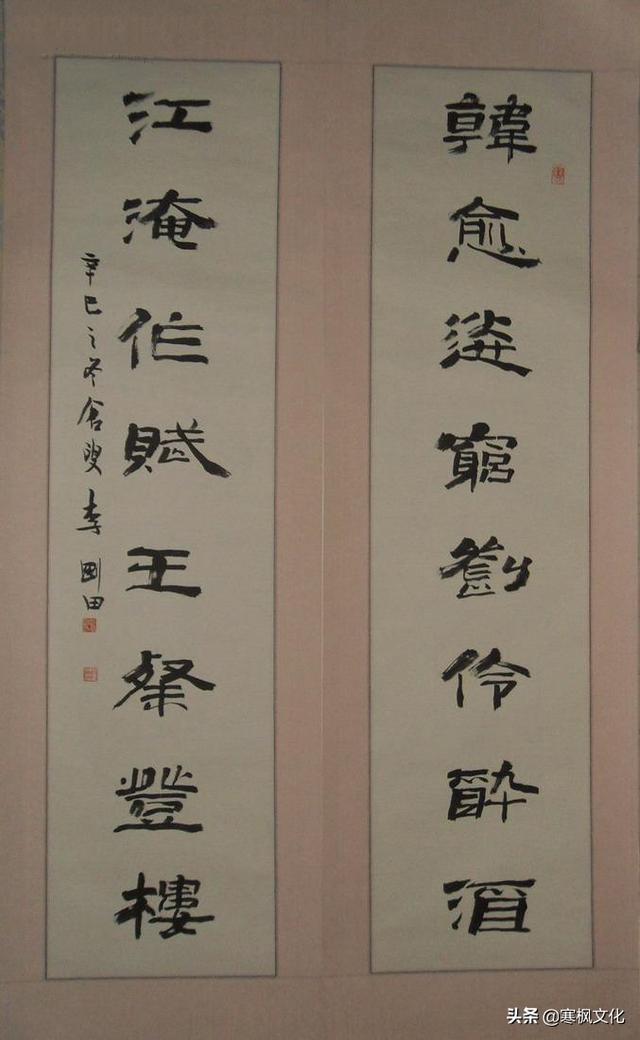 韓愈送窮劉伶醉酒
江淹作賦王粲登樓
辛巳之冬倉叟李剛田
头条 @寒枫文化